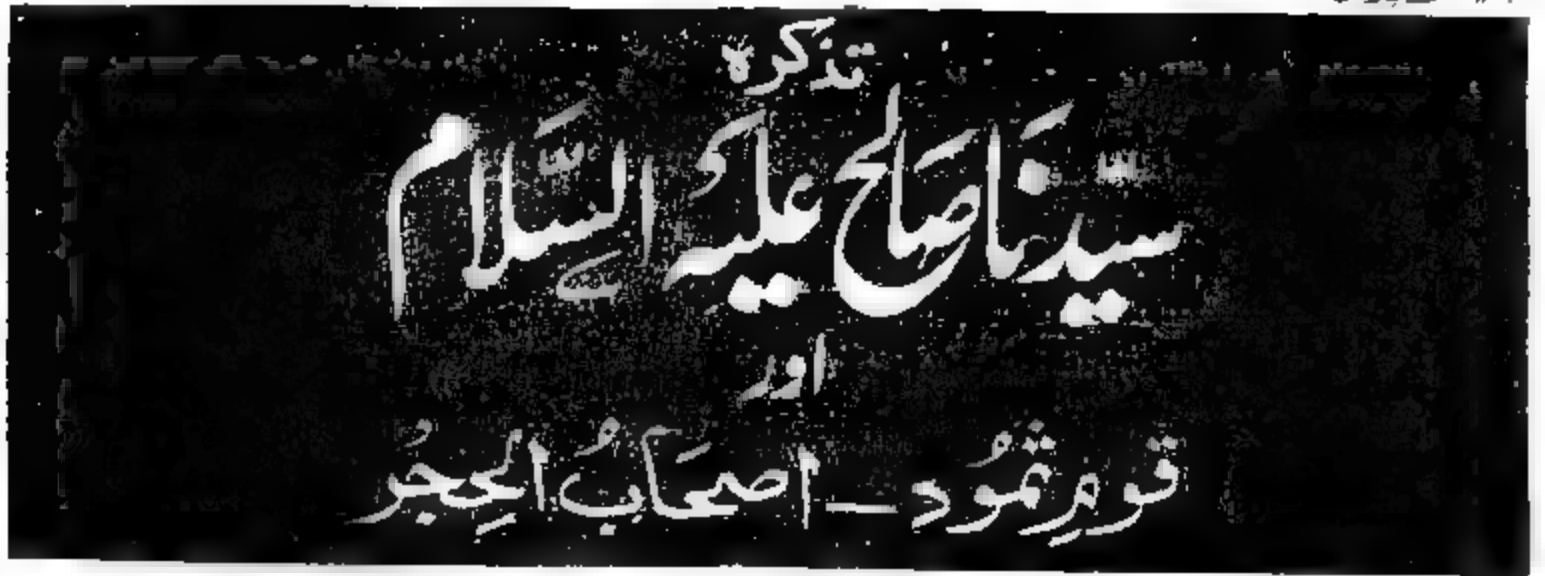 تذکرہ
سیّدنا صالح علیہ السّلام
اور
قومِ ثمُود — اصحَابُ الحِجرُ